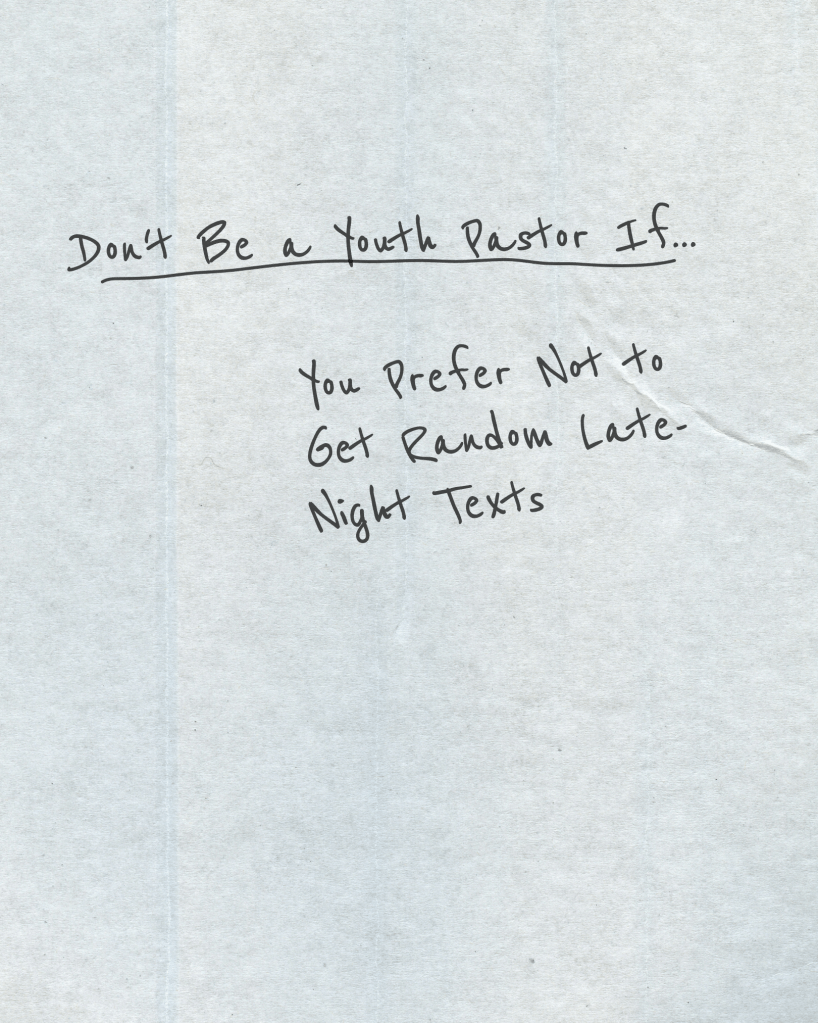 Don't Be a Youth Pastor If...
You Prefer Not to
Get Random Late-
Night Texts